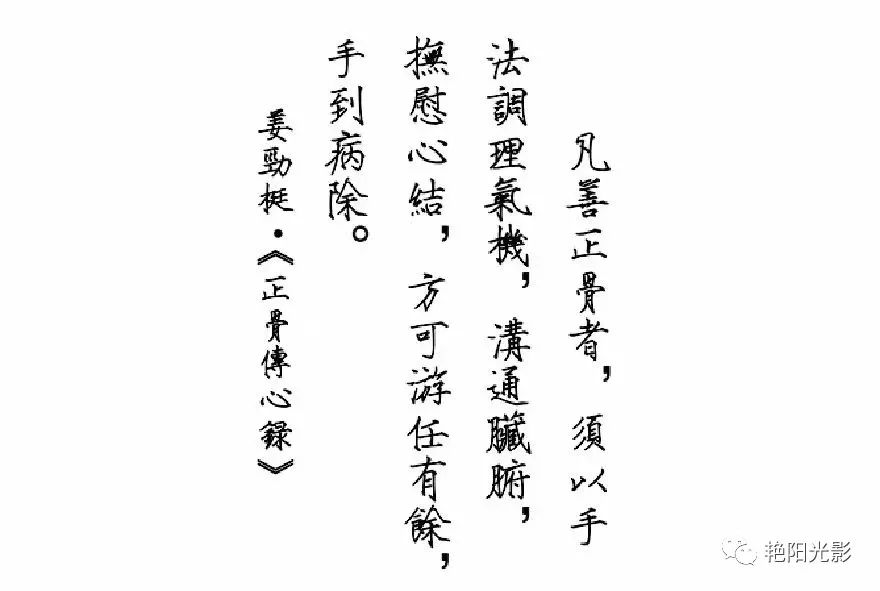 凡善正骨者，須以手
法調理氣機，溝通臟腑，
撫慰心結，方可游任有餘，
手到病除。
姜勁挺·《正骨傳心録》
艳阳光影